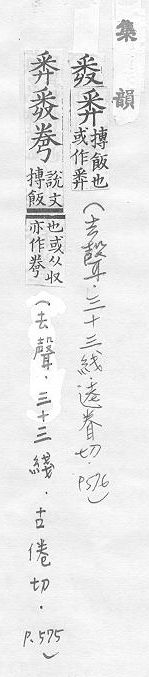 集韻
摶飯也
或作
(去聲．三十三綫．逵眷切．P.576)
說文
摶飯
也或从収
亦作
(去聲．三十三綫．古倦切．P.575)